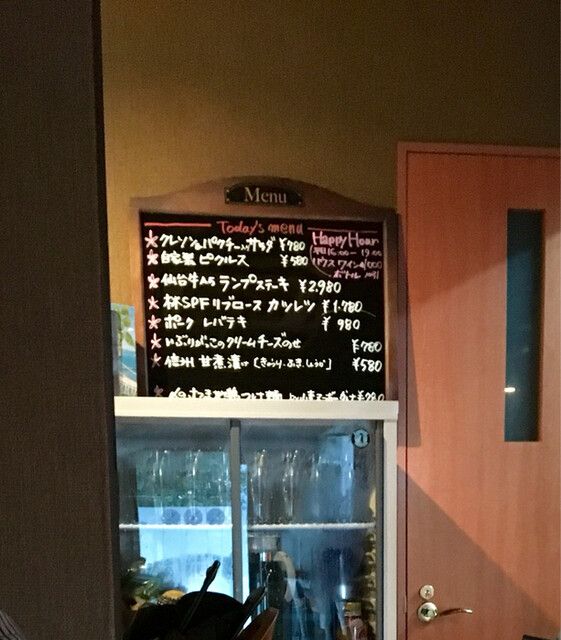 Menu
Today's menu
★クレソン&パクチーのサラダ ¥780
★自家製 ピクルス ¥580
Happy Hour
平日16:00~19:00
ハウスワイン
ボトル
★仙台牛A5 ランプステーキ ¥2,980
★林SPFリブロース カツレツ ¥1,780
★ポーク レバテキ ¥980
★いぶりがっこのクリームチーズのせ ¥780
★信州 甘煮漬け [きゅうり・ふき・しょうが] ¥580
★